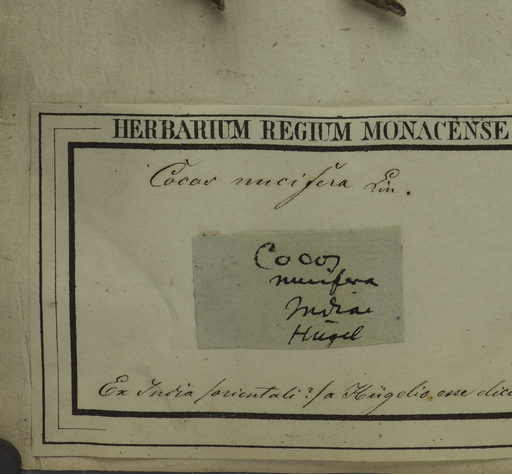 HERBARIUM REGIUM MONACENSE
Cocos nucifera Lin.
Cocos
nucifera
India
Hügel
Ex India (orientali?) a Hügelio esse dici